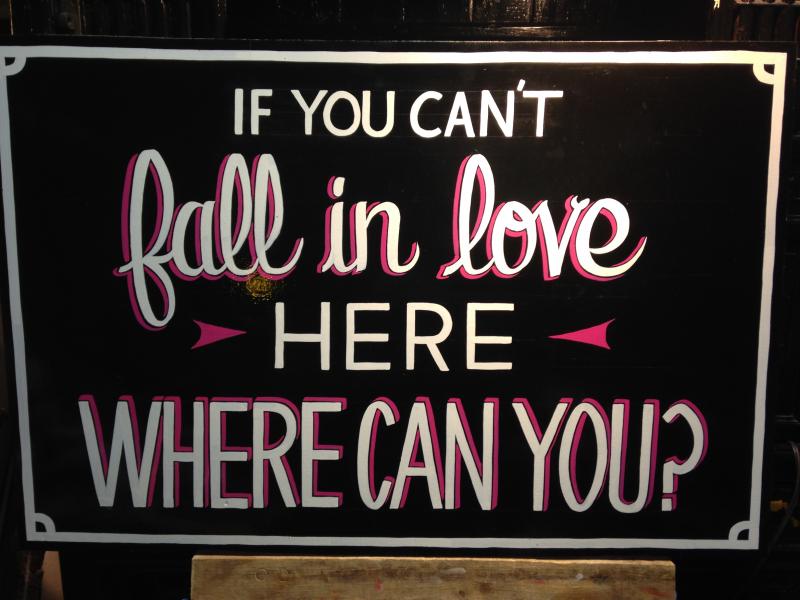 IF YOU CAN'T
fall in love
HERE
WHERE CAN YOU?